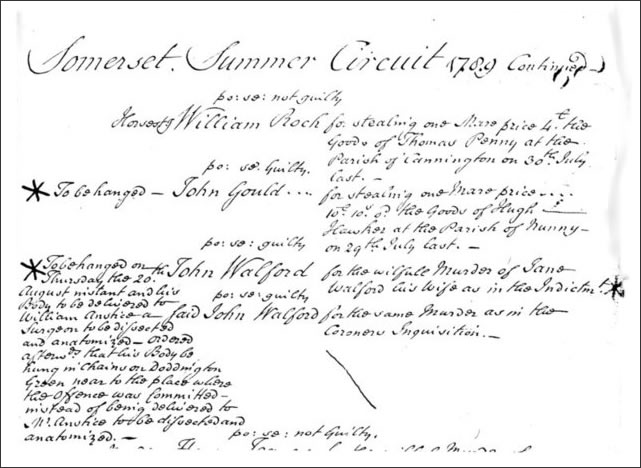 Somerset. Summer Circuit 1789 Continued
po: se: not guilty
William Roch for stealing one Mare price 4.£ the
Goods of Thomas Penny at the
Parish of Cannington on 30th. July
last. —
po: se: Guilty.
To be hanged — John Gould .... for stealing one Mare price ....
the Goods of Hugh
Hawker at the Parish of Nunny
on 29th. July last. —
po: se: guilty
To be hanged on John Walford for the wilfull Murder of Jane
Thursday the 20th. Walford his Wife as in the Indictmt.
August instant and his
po: se: guilty
Body to be delivered to
William Anstice a said John Walford for the same Murder as in the
Surgeon to be dissected Coroners Inquisition. —
and anatomized — ordered
afterwds. that his Body be
hung in Chains on Doddington
Green near to the place where
the Offence was Committed —
instead of being delivered to
Mr. Anstice to be dissected and
anatomized. —
po: se: not Guilty.